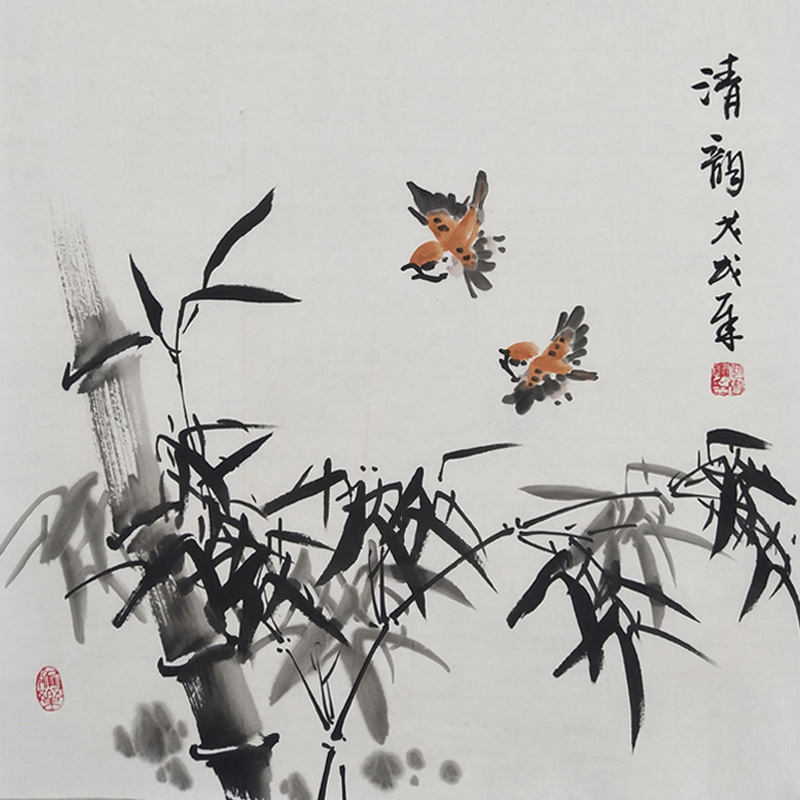 清韵戊戌年